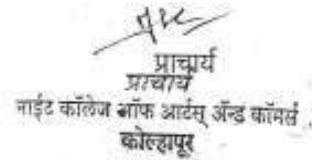 प्राचार्य
प्राचार्य
नाईट कॉलेज ऑफ आर्टस् ॲन्ड कॉमर्स
कोल्हापूर